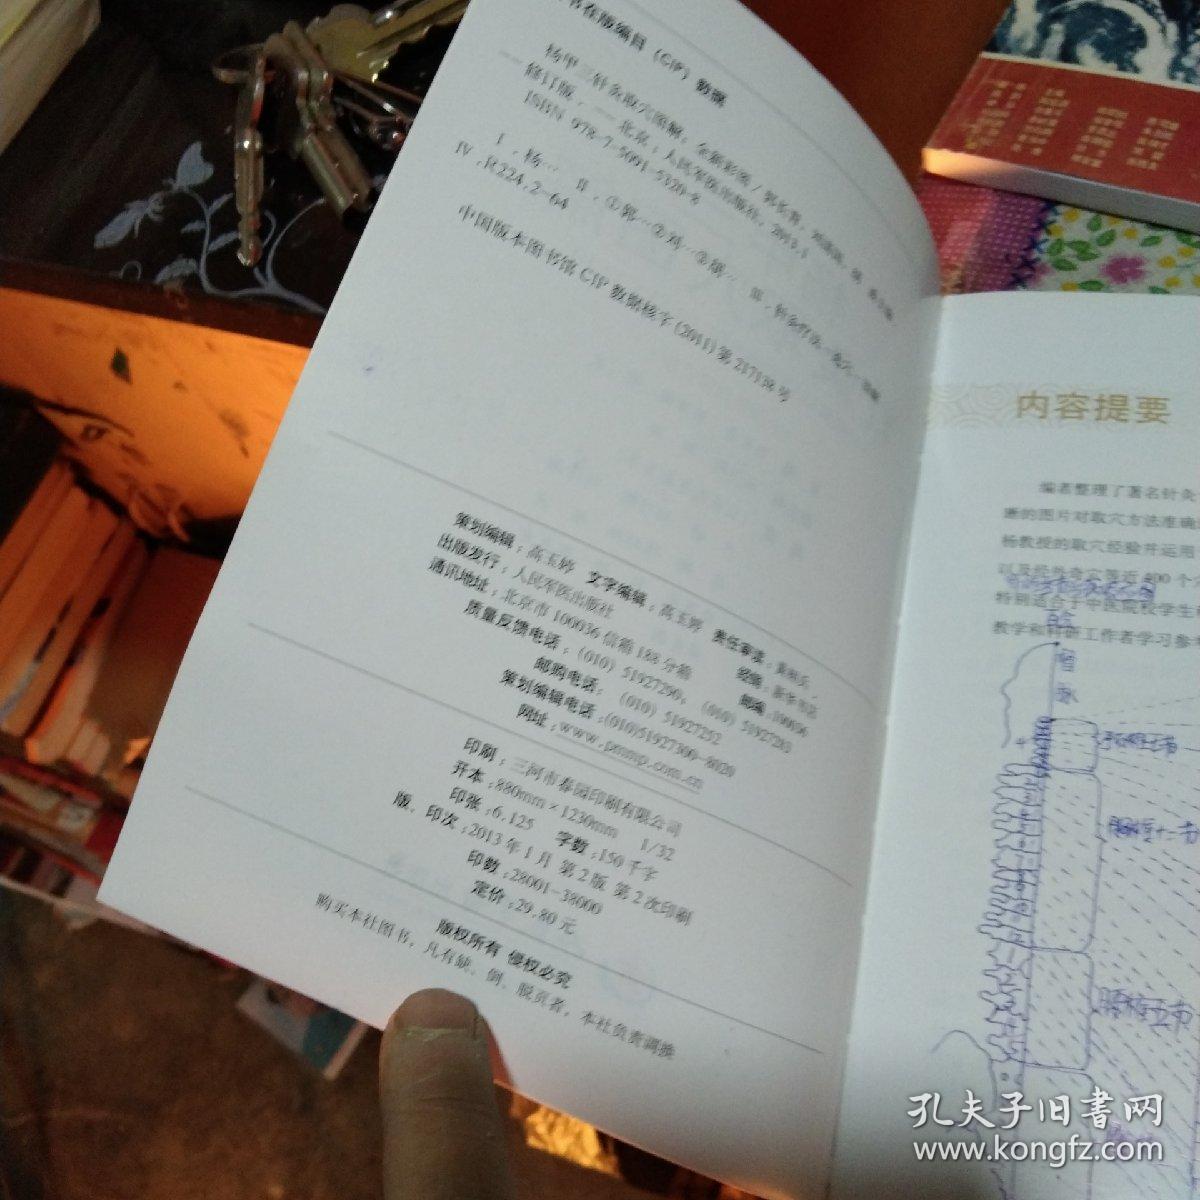 书在版编目（CIP）数据
杨甲三针灸取穴图解：全新彩图／郭长青，
修订版．——北京：人民军医出版社，2013.1
ISBN 978-7-5091-5320-8
Ⅰ．杨… Ⅱ．①郭…②刘…③胡… Ⅲ．针灸疗法—
Ⅳ．R224.2-64
中国版本图书馆CIP数据核字（2011）第217138号
策划编辑：高玉婷 文字编辑：高玉婷 责任审读：
出版发行：人民军医出版社 经销：新华书店
通讯地址：北京市100036信箱188分箱 邮编：100036
质量反馈电话：（010）51927290；（010）51927283
邮购电话：（010）51927252
策划编辑电话：(010)51927300-8029
网址：www.pmmp.com.cn
印刷：三河市春园印刷有限公司
开本：880mm×1230mm 1/32
印张：6.125 字数：150千字
版、印次：2013年1月 第2版 第2次印刷
印数：28001-38000
定价：29.80元
版权所有 侵权必究
购买本社图书，凡有缺、倒、脱页者，本社负责调换
内容提要
编者整理了著名针灸
晰的图片对取穴方法准确
杨教授的取穴经验并运用
以及经外奇穴等近400个
特别适合于中医院校学生
教学和科研工作者学习参考
督
脉
胸椎十二节
腰椎五节
孔夫子旧书网
www.kongfz.com